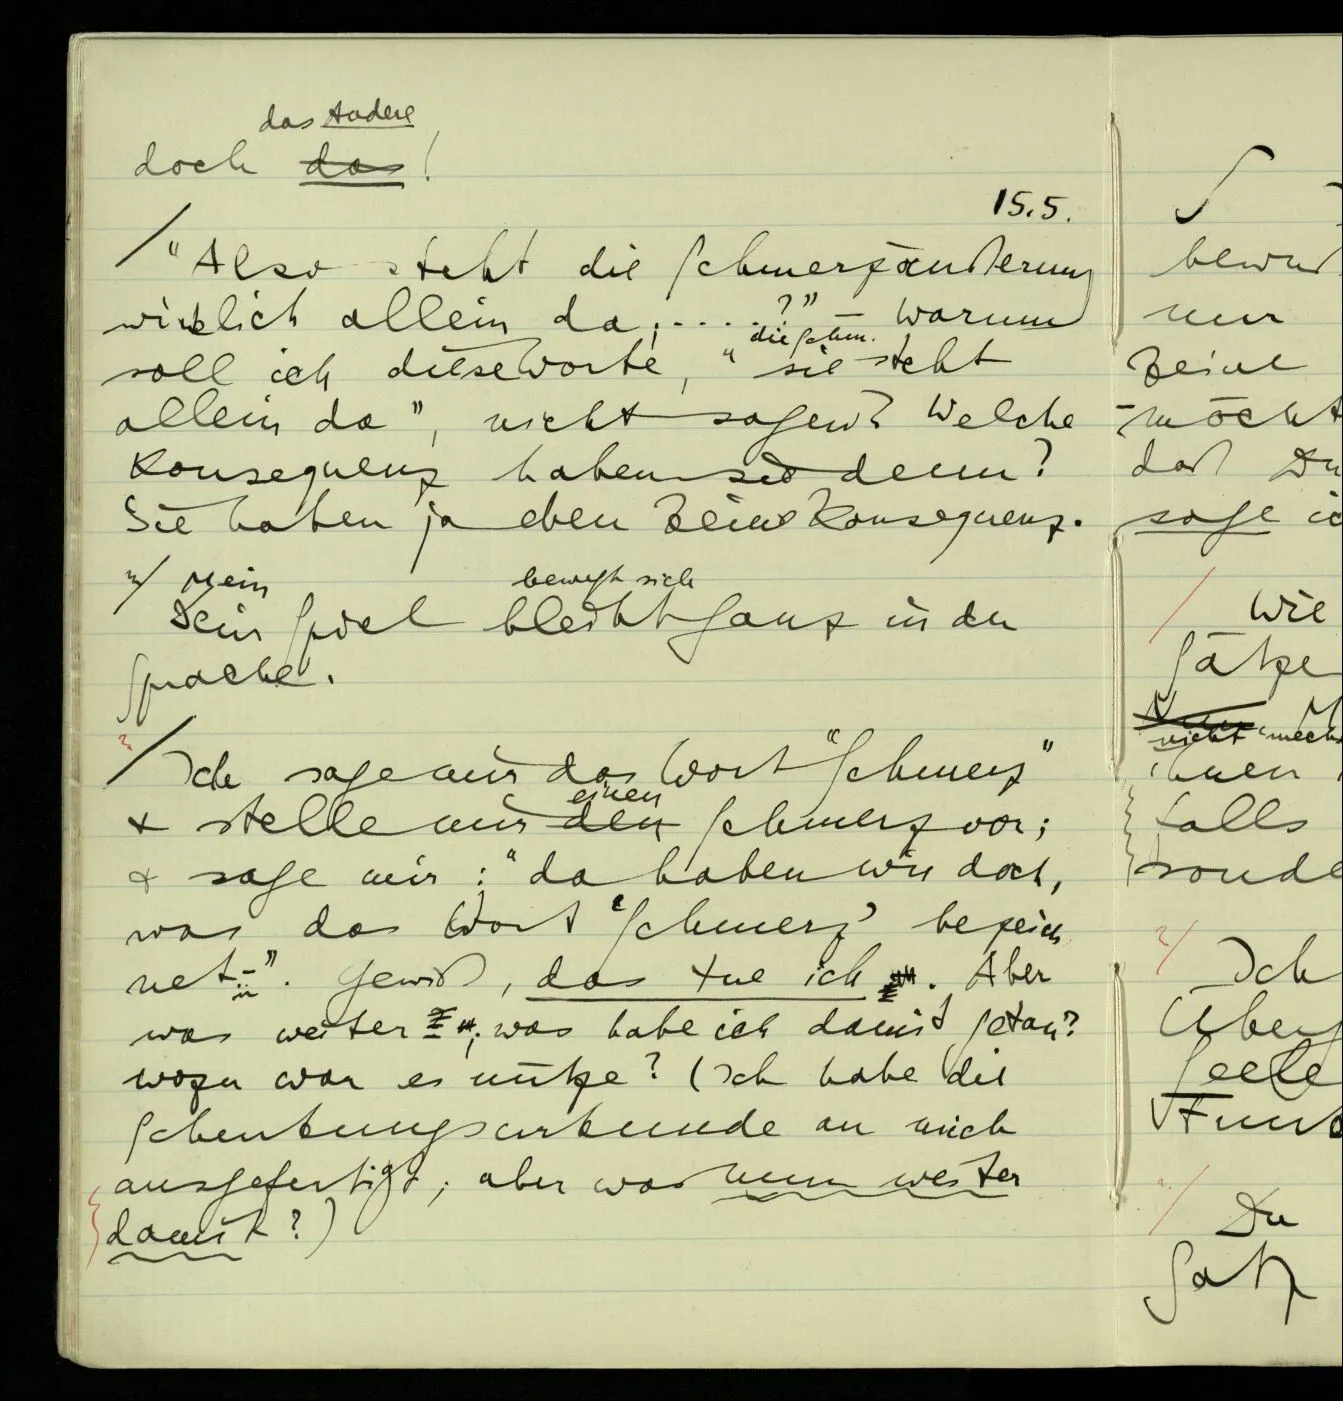 das Andere
doch das!
15.5.
/ "Also steht die Schmerzäußerung
wirklich allein da; . . . . .?" – Warum
die Schm.
soll ich diese Worte, "sie steht
allein da", nicht sagen? Welche
Konsequenz haben sie denn?
Sie haben ja eben keine Konsequenz.
Mein bewegt sich
Dein Spiel bleibt ganz in der
Sprache.
/ Ich sage mir das Wort "Schmerz"
einen
& stelle mir den Schmerz vor;
& sage mir: "da haben wir doch,
was das Wort 'Schmerz' bezeich
net–". Gewiß, das tue ich. Aber
was weiter; was habe ich damit getan?
wozu war es nütze? (Ich habe die
Schenkungsurkunde an mich
ausgefertigt; aber was nun weiter
damit?)
√
bewuß
nur
keine
möcht
daß Du
sage ic
/ Wie
Sätze
nicht
ihnen
falls
sonde
Ich
Über
Seele
Funk
/ Du
Satz